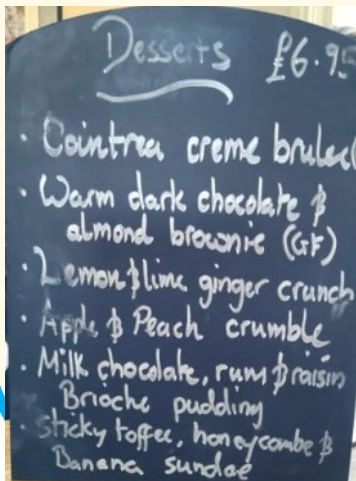 Desserts £6.95
· Cointrea creme brulee
· Warm dark chocolate &
almond brownie (GF)
· Lemon & lime ginger crunch
· Apple & Peach crumble
· Milk chocolate, rum & raisin
Brioche pudding
· Sticky toffee, honeycombe &
Banana sundae